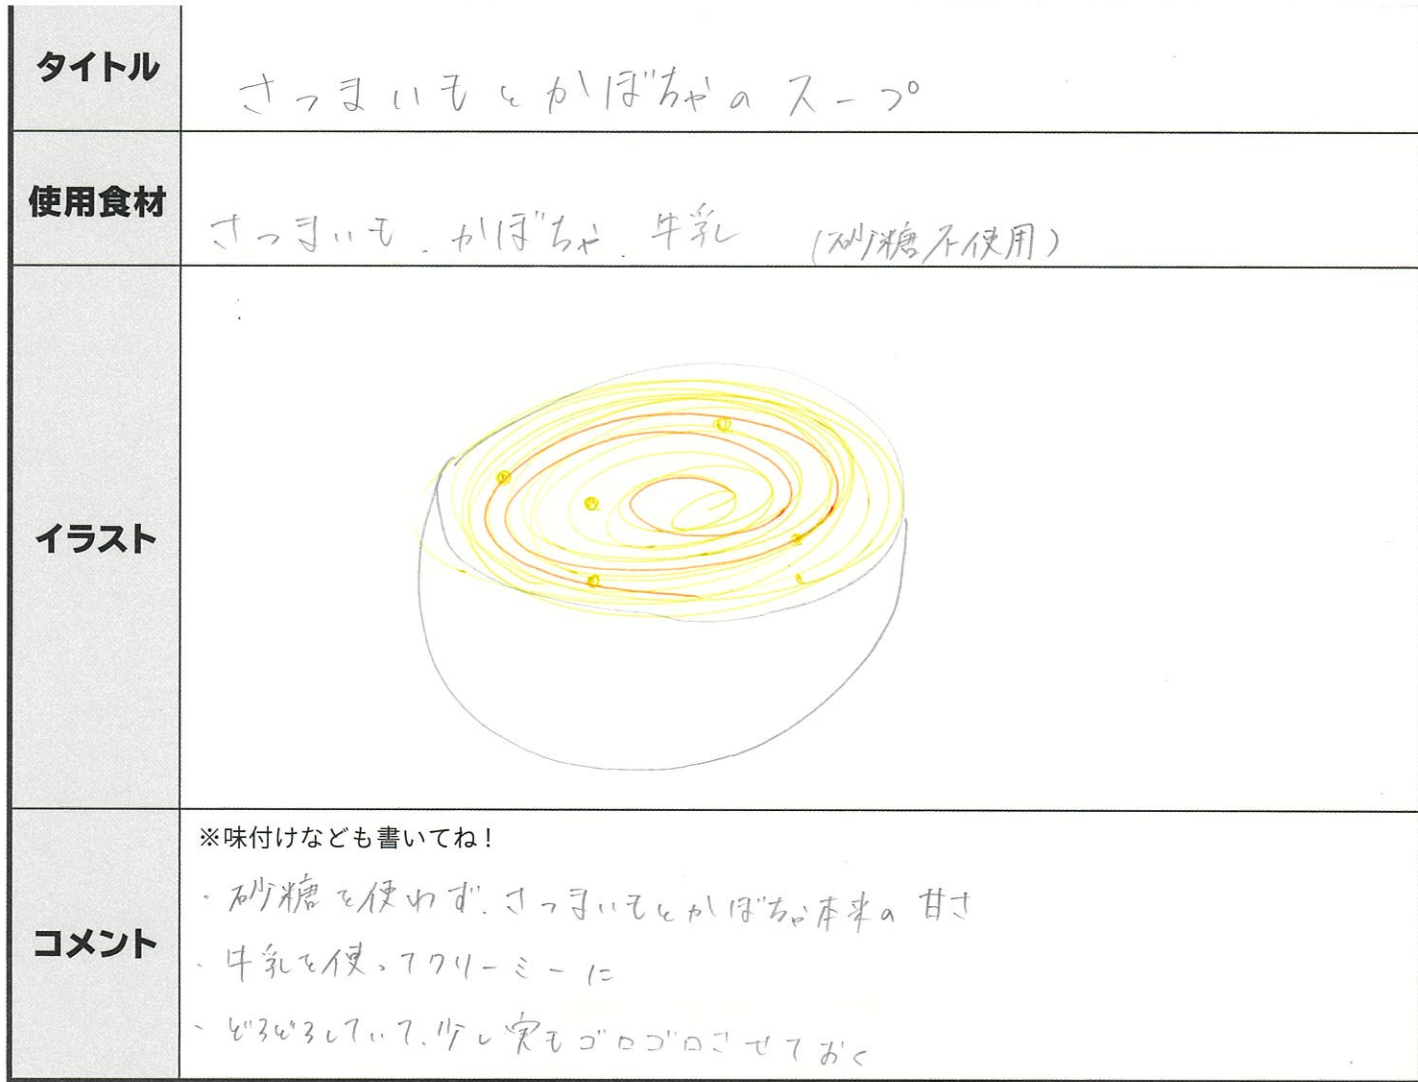 タイトル
さつまいもとかぼちゃのスープ
使用食材
さつまいも、かぼちゃ、牛乳 (砂糖不使用)
イラスト
コメント
※味付けなども書いてね！
・砂糖を使わず、さつまいもとかぼちゃ本来の甘さ
・牛乳を使ってクリーミーに
・どろどろしていて、少し実もゴロゴロさせておく